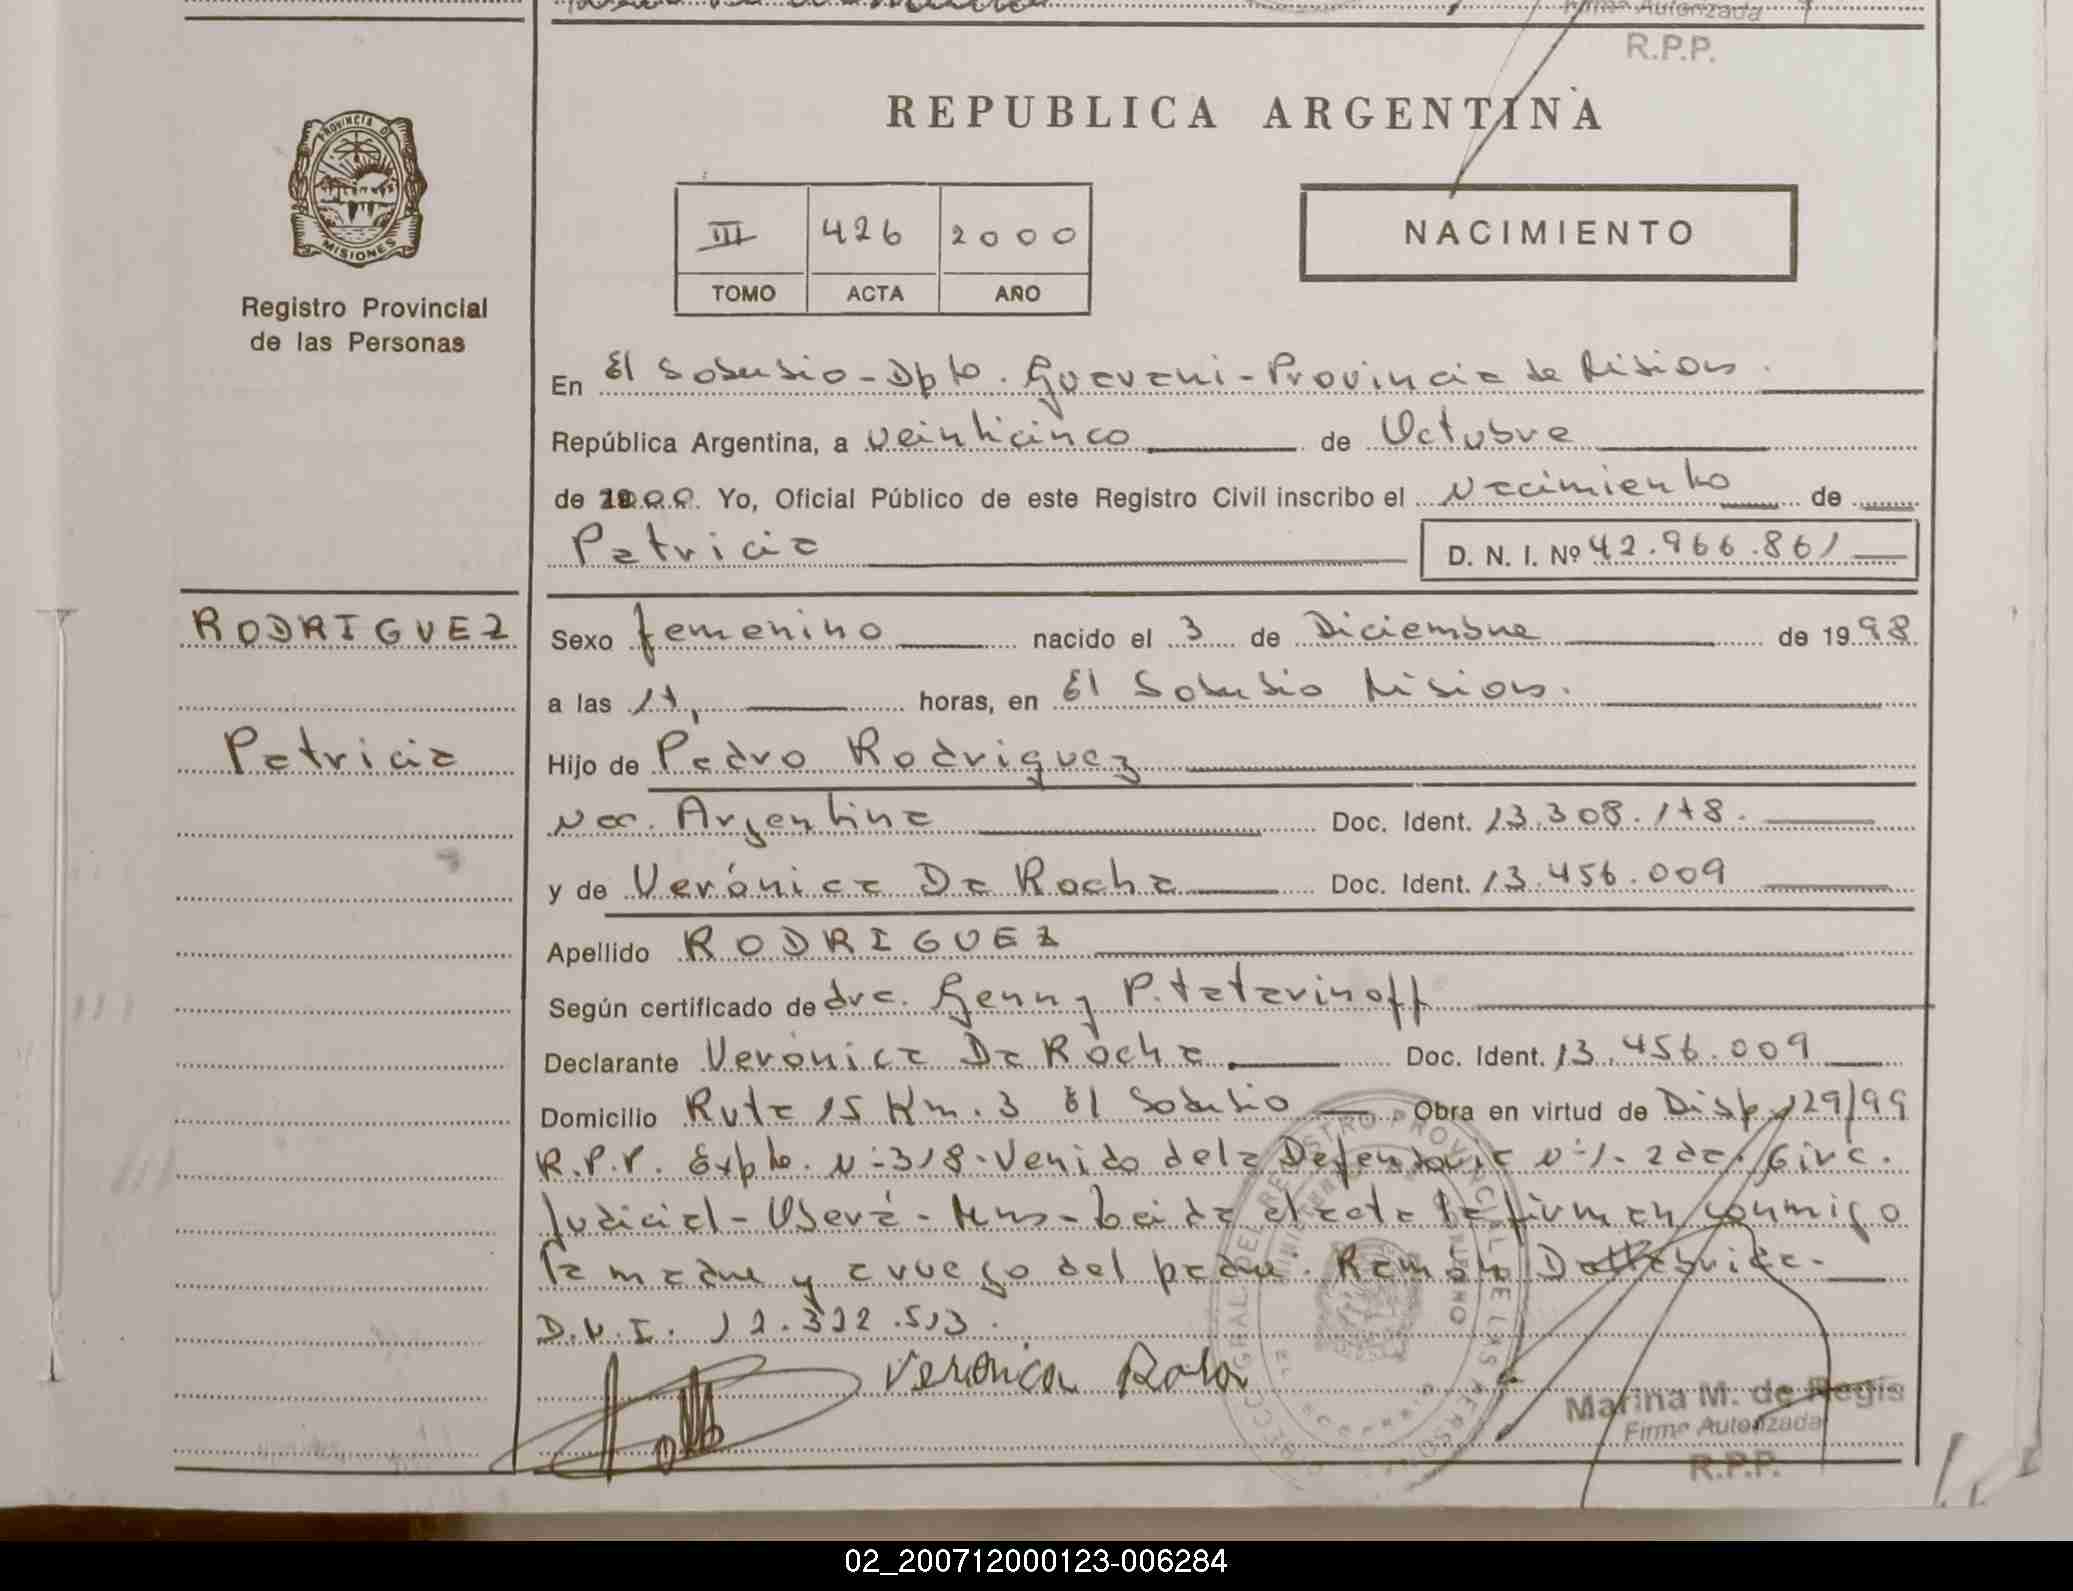 Firma Autorizada
R.P.P.
PROVINCIA DE
MISIONES
Registro Provincial
de las Personas
REPUBLICA ARGENTINA
III 426 2000
TOMO ACTA AÑO
NACIMIENTO
En El Soberbio - Dpto. Guarani - Provincia de Misiones.
República Argentina, a veinticinco de Octubre
de 2000. Yo, Oficial Público de este Registro Civil inscribo el Nacimiento de
Patricia D. N. I. Nº 42.966.861
RODRIGUEZ
Patricia
Sexo femenino nacido el 3 de Diciembre de 1998
a las 17, horas, en El Soberbio Misiones.
Hijo de Pedro Rodriguez
Nac. Argentina Doc. Ident. 13.308.178.
y de Verónica Da Rocha Doc. Ident. 13.456.009
Apellido RODRIGUEZ
Según certificado de dra. Genny P. Tatarinoff
Declarante Verónica Da Rocha Doc. Ident. 13.456.009
Domicilio Ruta 15 Km. 3 El Soberbio Obra en virtud de Disp. 129/99
R.P.P. Expte. Nº 318 - Venido de la Defensoria Nº 1 - 2da. Circ.
Judicial - Oberá - Mns - Leida el acta la firman conmigo
la madre y a ruego del padre. Ramón
D.N.I. 12.322.513.
Veronica Rosa
Marina M. de Regis
Firma Autorizada
R.P.P.
02_200712000123-006284